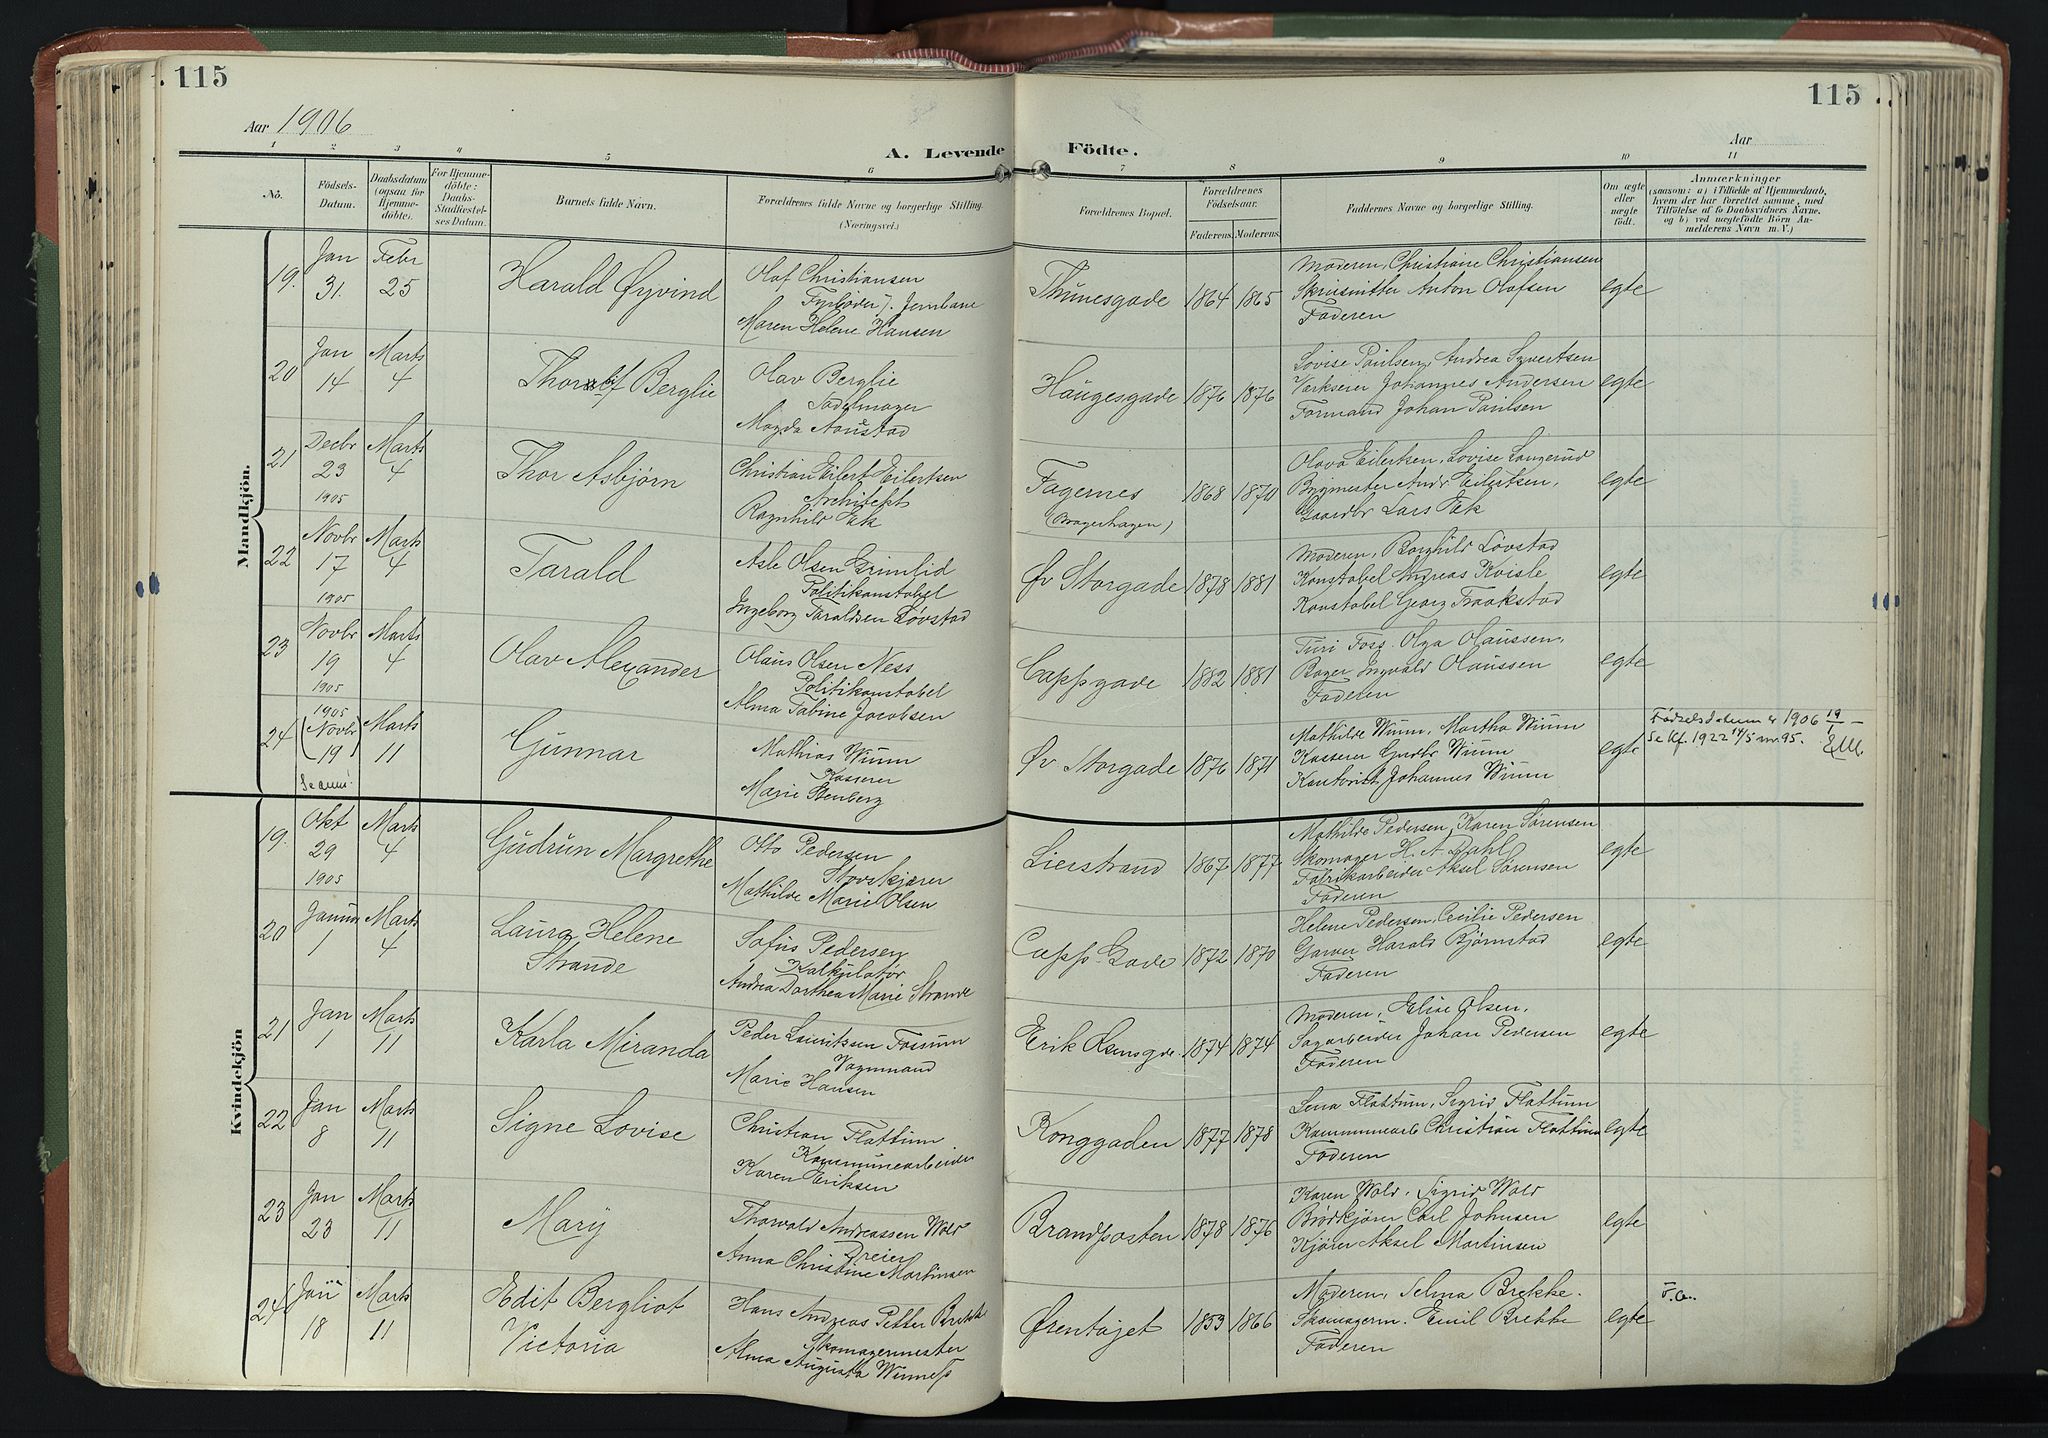 115
115
Aar 1906
Aar
A. Levende Födte.
1 2 3 4 5 6 7 8 9 10 11
No.
Födsels-Datum.
Daabsdatum (ogsaa för Hjemmedöbte).
For Hjemmedöbte: Daabs-Stadfæstelses Datum.
Barnets fulde Navn.
Forældrenes fulde Navne og borgerlige Stilling. (Næringsvei.)
Forældrenes Bopæl.
Forældrenes Födselsaar.
Faderens. Moderens.
Faddernes Navne og borgerlige Stilling.
Om ægte eller uægte födt.
Anmærkninger
(saasom: a) i Tilfælde af Hjemmedaab, hvem der har forrettet samme, med Tilföielse af to Daabsvidners Navne, og b) ved uægtefödte Börn Anmelderens Navn m. V.)
Mandkjön.
19. Jan 31. Febr 25 Harald Øyvind
Olaf Christiansen
Fyrbøder v. Jernbane
Maren Helene Hansen
Thunesgade 1864 1865
Moderen, Christiane Christiansen
Skrusnitter Anton Olafsen
Faderen
egte
20 Jan 14 Marts 4 Berglie
Olav Berglie
Sadelmager
Magda
Haugesgade 1876 1876
Lovise Paulsen, Andrea Syvertsen
Værkseier Johannes Andersen
Formand Johan Paulsen
egte
21 Decbr 23 1905 Marts 4 Thor Asbjørn
Christian Eilert Eilertsen
Architekt
Ragnhild Ek
Fagernes
(Bragerhagen)
1868 1870
Olava Eilertsen, Lovise Langerud
Bygmester Andr Eilertsen,
Gaardbr Lars Ek
egte
22 Novbr 17 1905 Marts 4 Tarald
Asle Olsen Grimlid
Politikonstabel
Ingeborg Taraldsen Løvstad
Øv Storgade 1878 1881
Moderen, Borghild Løvstad
Konstabel Andreas Kvisle
Konstabel Georg Traakstad
egte
23 Novbr 19 1905 Marts 4 Olav Alexander
Olaus Olsen Ness
Politikonstabel
Alma Sabine Jacobsen
Cappgade 1882 1881
Turi Foss, Olga Olaussen,
Bager Ingvald Olaussen
Faderen
egte
24 1905 (Novbr 19) Se anm: Marts 11 Gunnar
Mathias Wiium
Kasserer
Marie Stenberg
Øv Storgade 1876 1871
Mathilde Wiium, Martha Wiium
Kasserer Gudbr Wiium
Kontorist Johannes Wiium
egte
Fødselsdatum er 1906 19/1 –
Se Kf. 1922 14/5 nr. 95.
Kvindekjön
19. Okt 29 1905 Marts 4 Gudrun Margrethe
Otto Pedersen
Stovskjærer
Mathilde Marie Olsen
Lierstrand 1867 1877
Mathilde Pedersen, Karen Sørensen
Skomager H. A. Dahl
Fabrikarbeider Aksel Sørensen
Faderen
egte
20 Januar 1 Marts 4 Laura Helene
Strande
Sofus Pedersen
Kalkulatør
Andrea Dorthea Marie Strande
Capp. Gade 1872 1870
Helene Pedersen, Cecilie Pedersen
Garver Harald Bjørnstad
Faderen
egte
21 Jan 1 Marts 11 Karla Miranda
Peder Lauritsen Fossum
Vognmand
Marie Hansen
Erik Olsensgde. 1874 1874
Moderen, Elise Olsen,
Sagarbeider Johan Pedersen
Faderen
egte
22 Jan 8 Marts 11 Signe Lovise
Christian Flattum
Kommunearbeider
Karen Eriksen
Konggaden 1877 1878
Lena Flattum, Sigrid Flattum
Kommunearb Christian Flattum
Faderen
egte
23 Jan 23 Marts 11 Mary
Thorvald Andreassen Wold
Dreier
Anna Christine Martinsen
Brandposten 1878 1876
Karen Wold, Sigrid Wold
Brødkjører Carl Johnsen
Kjører Aksel Martinsen
egte
24 18 Marts 11 Edit Bergliot
Victoria
Hans Andreas Petter Brekke
Skomagermester
Alma Augusta
Ørentøjet 1853 1866
Moderen, Selma Brekke.
Skomagerm. Emil Brekke
Faderen
egte